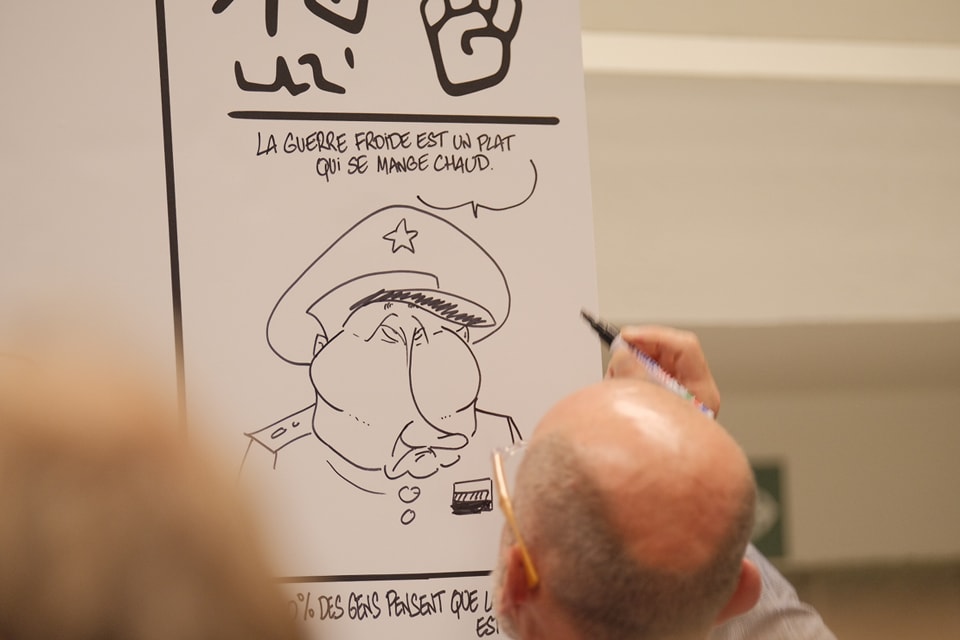 LA GUERRE FROIDE EST UN PLAT
QUI SE MANGE CHAUD.
% DES GENS PENSENT QUE